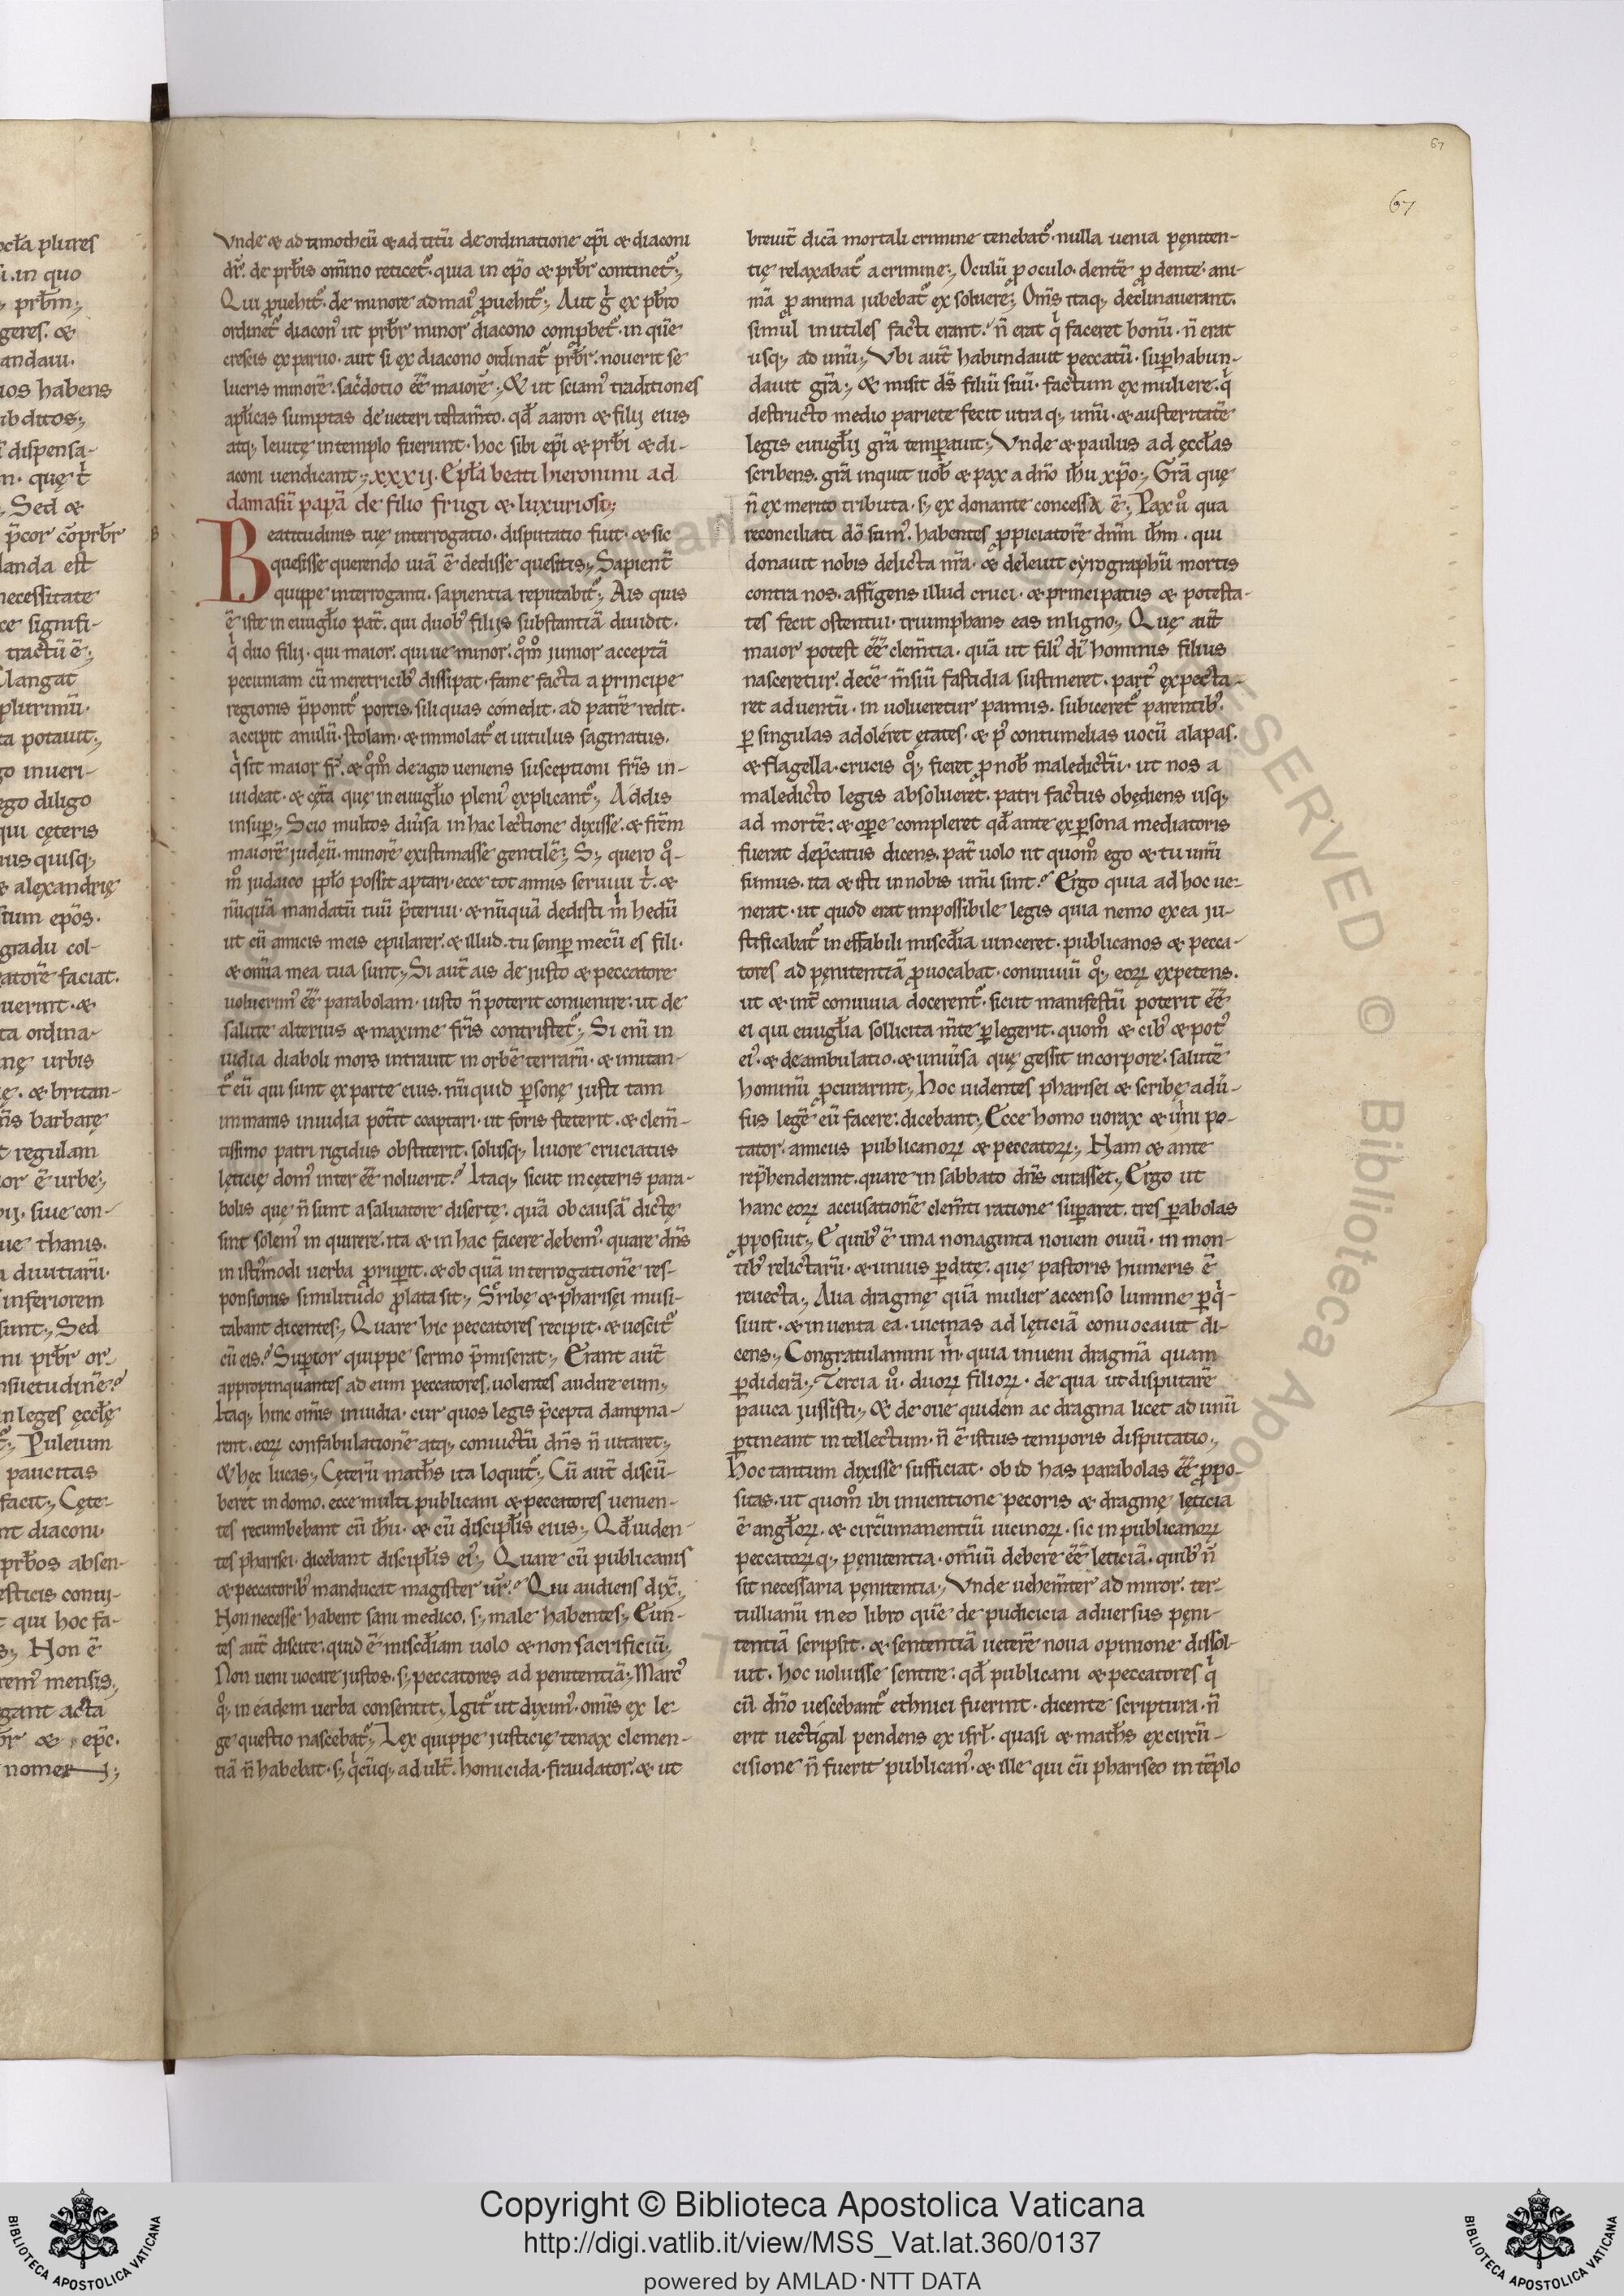 67
67
Vnde & ad timotheū & ad titū de ordinatione ep̄i & diaconi
dr̄. de prb̄is om̄ino reticet᷑. quia in ep̄o & prb̄r continet᷑;
Qui ꝓuehit᷑. de minore ad mai᷒ ꝓuehit᷑; Aut g̊ ex pb̄ro
ordinet᷑ diacon᷒ ut prb̄r minor diacono comꝓbet᷑. in quē
crescis ex paruo. aut si ex diacono ordinat᷑ prb̄r. nouerit se
lucris minorē. sac̄dotio eē̄ maiorē; & ut sciam᷒ traditiones
apl̄icas sumptas de ueteri testam̄to. qđ aaron & filij eius
atq; leuitę in templo fuerunt. hoc sibi ep̄i & prb̄i & di-
aconi uendicant; xxxij. Epl̄a beati hieronimi ad
damasū papā de filio frugi & luxurioso;
Beatitudinis tuę interrogatio. disputatio fuit. & sic
quesisse querendo uiā ē dedisse quesitis; Sapient̄
quippe interroganti. sapientia reputabit᷑; Ais quis
ē iste in euuglīo pat̄. qui duob᷒ filijs substantiā diuidit.
q̇ duo filij. qui maior. qui ue minor. q̊m̊ junior acceptā
pecuniam cū meretricib᷒ dissipat. fame facta a principe
regionis p̄ponit᷑ porcis. siliquas comedit. ad patrē redit.
accipit anulū. stolam. & immolat᷑ ei uitulus saginatus.
q̇ sit maior fr̄. & q̊m̊ de agro ueniens susceptioni fr̄is in-
uideat. & cęt̄a quę in euuglīo pleni᷒ explicant᷑; Addis
insuꝑ; Scio multos diuersa in hac lectione dixisse. & fr̄em
maiorē judęū. minorē existimasse gentilē; S; quero q̊-
m̊ judaico ppl̄o possit aptari. ecce tot annis seruiui t̊. &
nūquā mandatū tuū p̄terij. & nūquā dedisti m̊ hedū
ut cū amicis meis epularer. & illud. tu semꝑ mecū es fili.
& om̄ia mea tua sunt; Si aut̄ ais de justo & peccatore
uoluerim᷒ eē̄ parabolam. iusto n̄ poterit conuenire. ut de
salute alterius & maxime fr̄is contristet᷑; Si eni in
uidia diaboli mors intrauit in orbē terrarū. & imitan-
t᷑ eū qui sunt ex parte eius. nūquid ꝑsonę justi tam
immanis inuidia pot̄it coaptari. ut foris steterit. & clem̄-
tissimo patri rigidus obstiterit. solusq; liuore cruciatus
lęticię dom᷒ inter eē̄ noluerit? Itaq; sicut in cęteris para-
bolis quę n̄ sunt a saluatore disertę. quā ob causā dictę
sint solem᷒ inquirere. ita & in hac facere debem᷒. quare dn̄s
in isti᷒modi uerba ꝓruꝑit. & ob quā interrogationē res-
ponsionis similitudo ꝓlata sit; Scribę & pharisęi musi-
tabant dicentes; Quare hic peccatores recipit. & uescit᷑
cū eis? Suꝑior quippe sermo p̄miserat; Erant aut̄
appropinquantes ad eum peccatores, uolentes audire eum;
Itaq; hinc om̄is inuidia. cur quos legis p̄cepta dampna-
rent. eoꝝ confabulationē atq; conuictū dn̄s n̄ uitaret;
& hęc lucas; Cęterū math̄s ita loquit᷑; Cū aut̄ discū-
beret in domo. ecce multi publicani & peccatores uenien-
tes recumbebant cū ih̄u. & cū discipl̄is eius; Qđ uiden-
tes pharisei. dicebant discipl̄is ei᷒; Quare cū publicanis
& peccatorib᷒ manducat magister ur̄? Qui audiens dix̄.
Non necesse habent sani medico. s; male habentes; Eun-
tes aut̄ discite. quid ē misc̄dīam uolo & non sacrificiū.
Non ueni uocare justos. s; peccatores ad penitentiā; Marc᷒
q̊; in eadem uerba consentit; Igit᷑ ut dixim᷒. om̄is ex le-
ge questio nascebat᷑; Lex quippe justicię tenax clemen-
tiā n̄ habebat. s; q̇cūq; adult̄. homicida. fraudator. & ut
breuit̄ dicā mortali crimine tenebat᷑. nulla uenia pęniten-
tię relaxabat᷑ a crimine; Oculū ꝓ oculo. dentē ꝓ dente. ani-
mā ꝓ anima jubebat᷑ exsoluere; Om̄s itaq; declinauerant.
simul inutiles facti erant. n̄ erat q̇ faceret bonū. n̄ erat
usq; ad unū; Vbi aut̄ habundauit peccatū. suꝑhabun-
dauit gr̄a; & misit ds̄ filiū suū. factum ex muliere. q̇
destructo medio pariete fecit utraq; unū. & austeritatē
legis euuglīj gr̄a temꝑauit; Vnde & paulus ad ęccl̄as
scribens. gr̄a inquit uob̄ & pax a dn̄o ih̄u xp̄o; Gr̄a quę
n̄ ex merito tributa. s; ex donante concessa ē; Pax ů qua
reconciliati dō sum᷒. habentes ꝓpiciatorē dn̄m ih̄m. qui
donauit nobis delicta nr̄a. & deleuit cyrographū mortis
contra nos. affigens illud cruci. & principatus & potesta-
tes fecit ostentui. triumphans eas in ligno; Quę aut̄
maior potest eē̄ clem̄tia. quā ut fili᷒ dī hominis filius
nasceretur. decē m̄siū fastidia sustineret. part᷒ expecta-
ret aduentū. inuolueretur pannis. subiceret᷑ parentib᷒.
ꝑ singulas adoléret ętates. & p᷒ contumelias uocū alapas.
& flagella. crucis q̊; fieret ꝓ nob̄ maledictū. ut nos a
maledicto legis absolueret. patri factus obędiens usq;
ad mortē. & oꝑe compleret qđ ante ex ꝑsona mediatoris
fuerat dep̄catus dicens. pat̄ uolo ut quom̊ ego & tu unū
sumus. ita & isti in nobis unū sint. Ergo quia ad hoc ue-
nerat. ut quod erat impossibile legis quia nemo ex ea ju-
stificabat᷑ ineffabili misc̄dīa uinceret. publicanos & pecca-
tores ad pęnitentiā ꝓuocabat. conuiuiū q̊; eoꝝ expetens.
ut & int̄ conuiuia docerent᷑. sicut manifestū poterit eē̄
ei qui euuglīa sollicita m̄te ꝑlegerit. quom̊ & cib᷒ & pot᷒
ei᷒. & deambulatio. & uniūsa quę gessit in corpore. salutē
hominū ꝓcurarint; Hoc uidentes pharisei & scribę adū-
sus legē eū facere. dicebant; Ecce homo uorax & uini po-
tator. amicus publicanoꝝ & peccatoꝝ; Nam & ante
rep̄henderant. quare in sabbato dn̄s curasset; Ergo ut
hanc eoꝝ accusationē clem̄ti ratione suꝑaret. tres ꝑabolas
ꝓposuit; E quib᷒ ē una nonaginta nouem ouiū. in mon-
tib᷒ relictarū. & unius ꝑditę. quę pastoris humeris ē
reuecta; Alia dragmę quā mulier accenso lumine ꝑq̇-
siuit. & inuenta ea. uicinas ad lęticiā conuocauit di-
cens; Congratulamini m̊. quia inueni dragmā quam
ꝑdiderā; Tercia ů. duoꝝ filioꝝ. de qua ut disputarē
pauca jussisti; & de oue quidem ac dragma licet ad unū
ꝑtineant intellectum. n̄ ē istius temporis disputatio;
Hoc tantum dixisse sufficiat. ob id has parabolas eē̄ ꝓpo-
sitas. ut quom̊ ibi inuentione pecoris & dragmę lęticia
ē angl̄oꝝ. & circūmanentiū uicinoꝝ. sic in publicanoꝝ
peccatoꝝq; pęnitentia. om̄iū debere eē̄ leticiā. quib᷒ n̄
sit necessaria pęnitentia; Vnde uehem̄ter admiror. ter-
tullianū in eo libro quē de pudicicia aduersus pęni-
tentiā scripsit. & sententiā ueterē noua opinione dissol-
uit. hoc uoluisse sentire. qđ publicani & peccatores q̇
cū dn̄o uescebant᷑ ethnici fuerint. dicente scriptura. n̄
erit uectigal pendens ex isrl̄. quasi & math̄s ex circū-
cisione n̄ fuerit publican᷒. & ille qui cū phariseo in tēplo
Copyright © Biblioteca Apostolica Vaticana
http://digi.vatlib.it/view/MSS_Vat.lat.360/0137
powered by AMLAD·NTT DATA
BIBLIOTECA APOSTOLICA VATICANA
BIBLIOTECA APOSTOLICA VATICANA